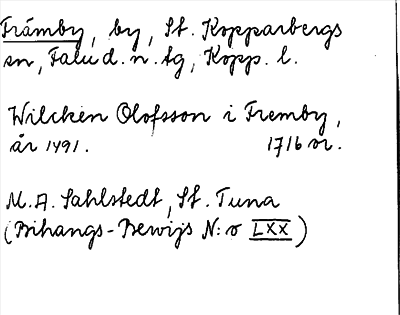 Främby, by, St. Kopparbergs
sn, Falu d. n. tg, Kopp. l.
Wilcken Olofsson i Fremby,
år 1491. 1716 or.
M. A. Sahlstedt, St. Tuna
(Bihangs-Bewijs N:o LXX)